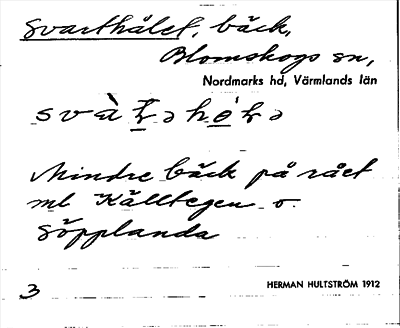 Svarthålet, bäck,
Blomskogs sn,
Nordmarks hd, Värmlands län
Mindre bäck på rået
ml Källtegen o.
Söpplanda
3
HERMAN HULTSTRÖM 1912